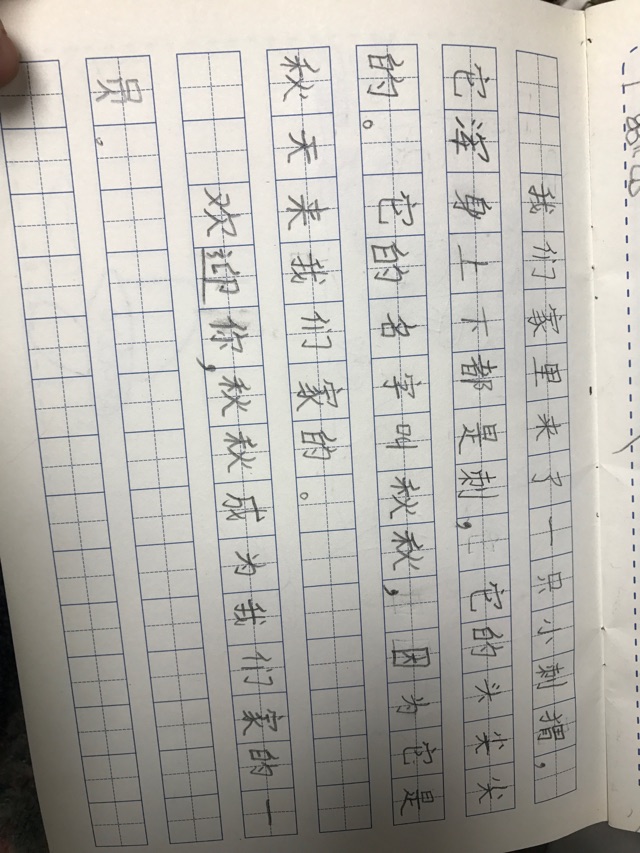 我们家里来了一只小刺猬，
它浑身上下都是刺，它的头尖尖
的。它的名字叫秋秋，因为它是
秋天来我们家的。
欢迎你，秋秋成为我们家的一
员。